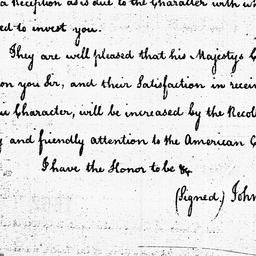 a Reception as is due to the Character with wh
ed to invest you.
They are well pleased that his Majestys C
on you Sir, and their Satisfaction in recei
Character, will be increased by the Recol
and friendly attention to the American C
I have the Honor to be &c
(Signed) John